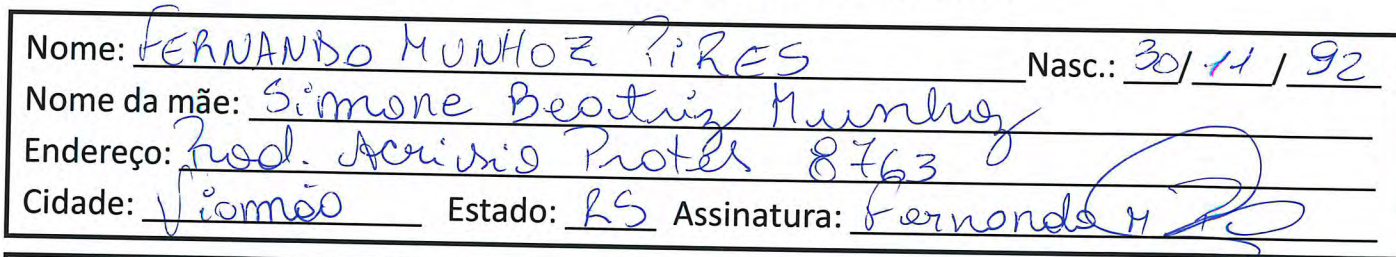 Nome: FERNANDO MUNHOZ PIRES Nasc.: 30/11/92
Nome da mãe: Simone Beatriz Munhoz
Endereço: Rod. Acrisio Protes 8763
Cidade: Viamão Estado: RS Assinatura: Fernando M